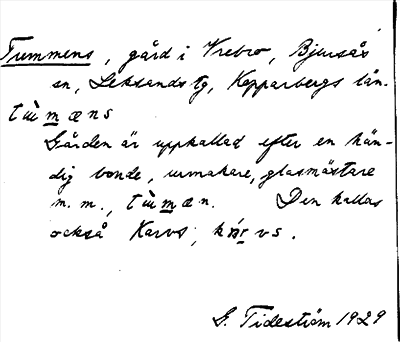 Tummens, gård i Vrebro, Bjursås
sn, Leksands tg, Kopparbergs län.
tùmæns
Gården är uppkallad efter en hän-
dig bonde, urmakare, glasmästare
m.m., tùmæn. Den kallas
också Karvs,
G. Tideström 1929